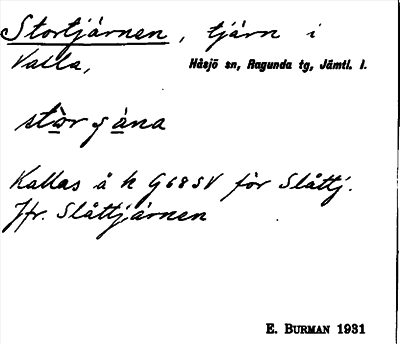 Stortjärnen, tjärn i
Valla,
Håsjö sn, Ragunda tg, Jämtl. l.
Kallas å k G 68 SV för Slåttj.
Jfr. Slåttjärnen
E. BURMAN 1931